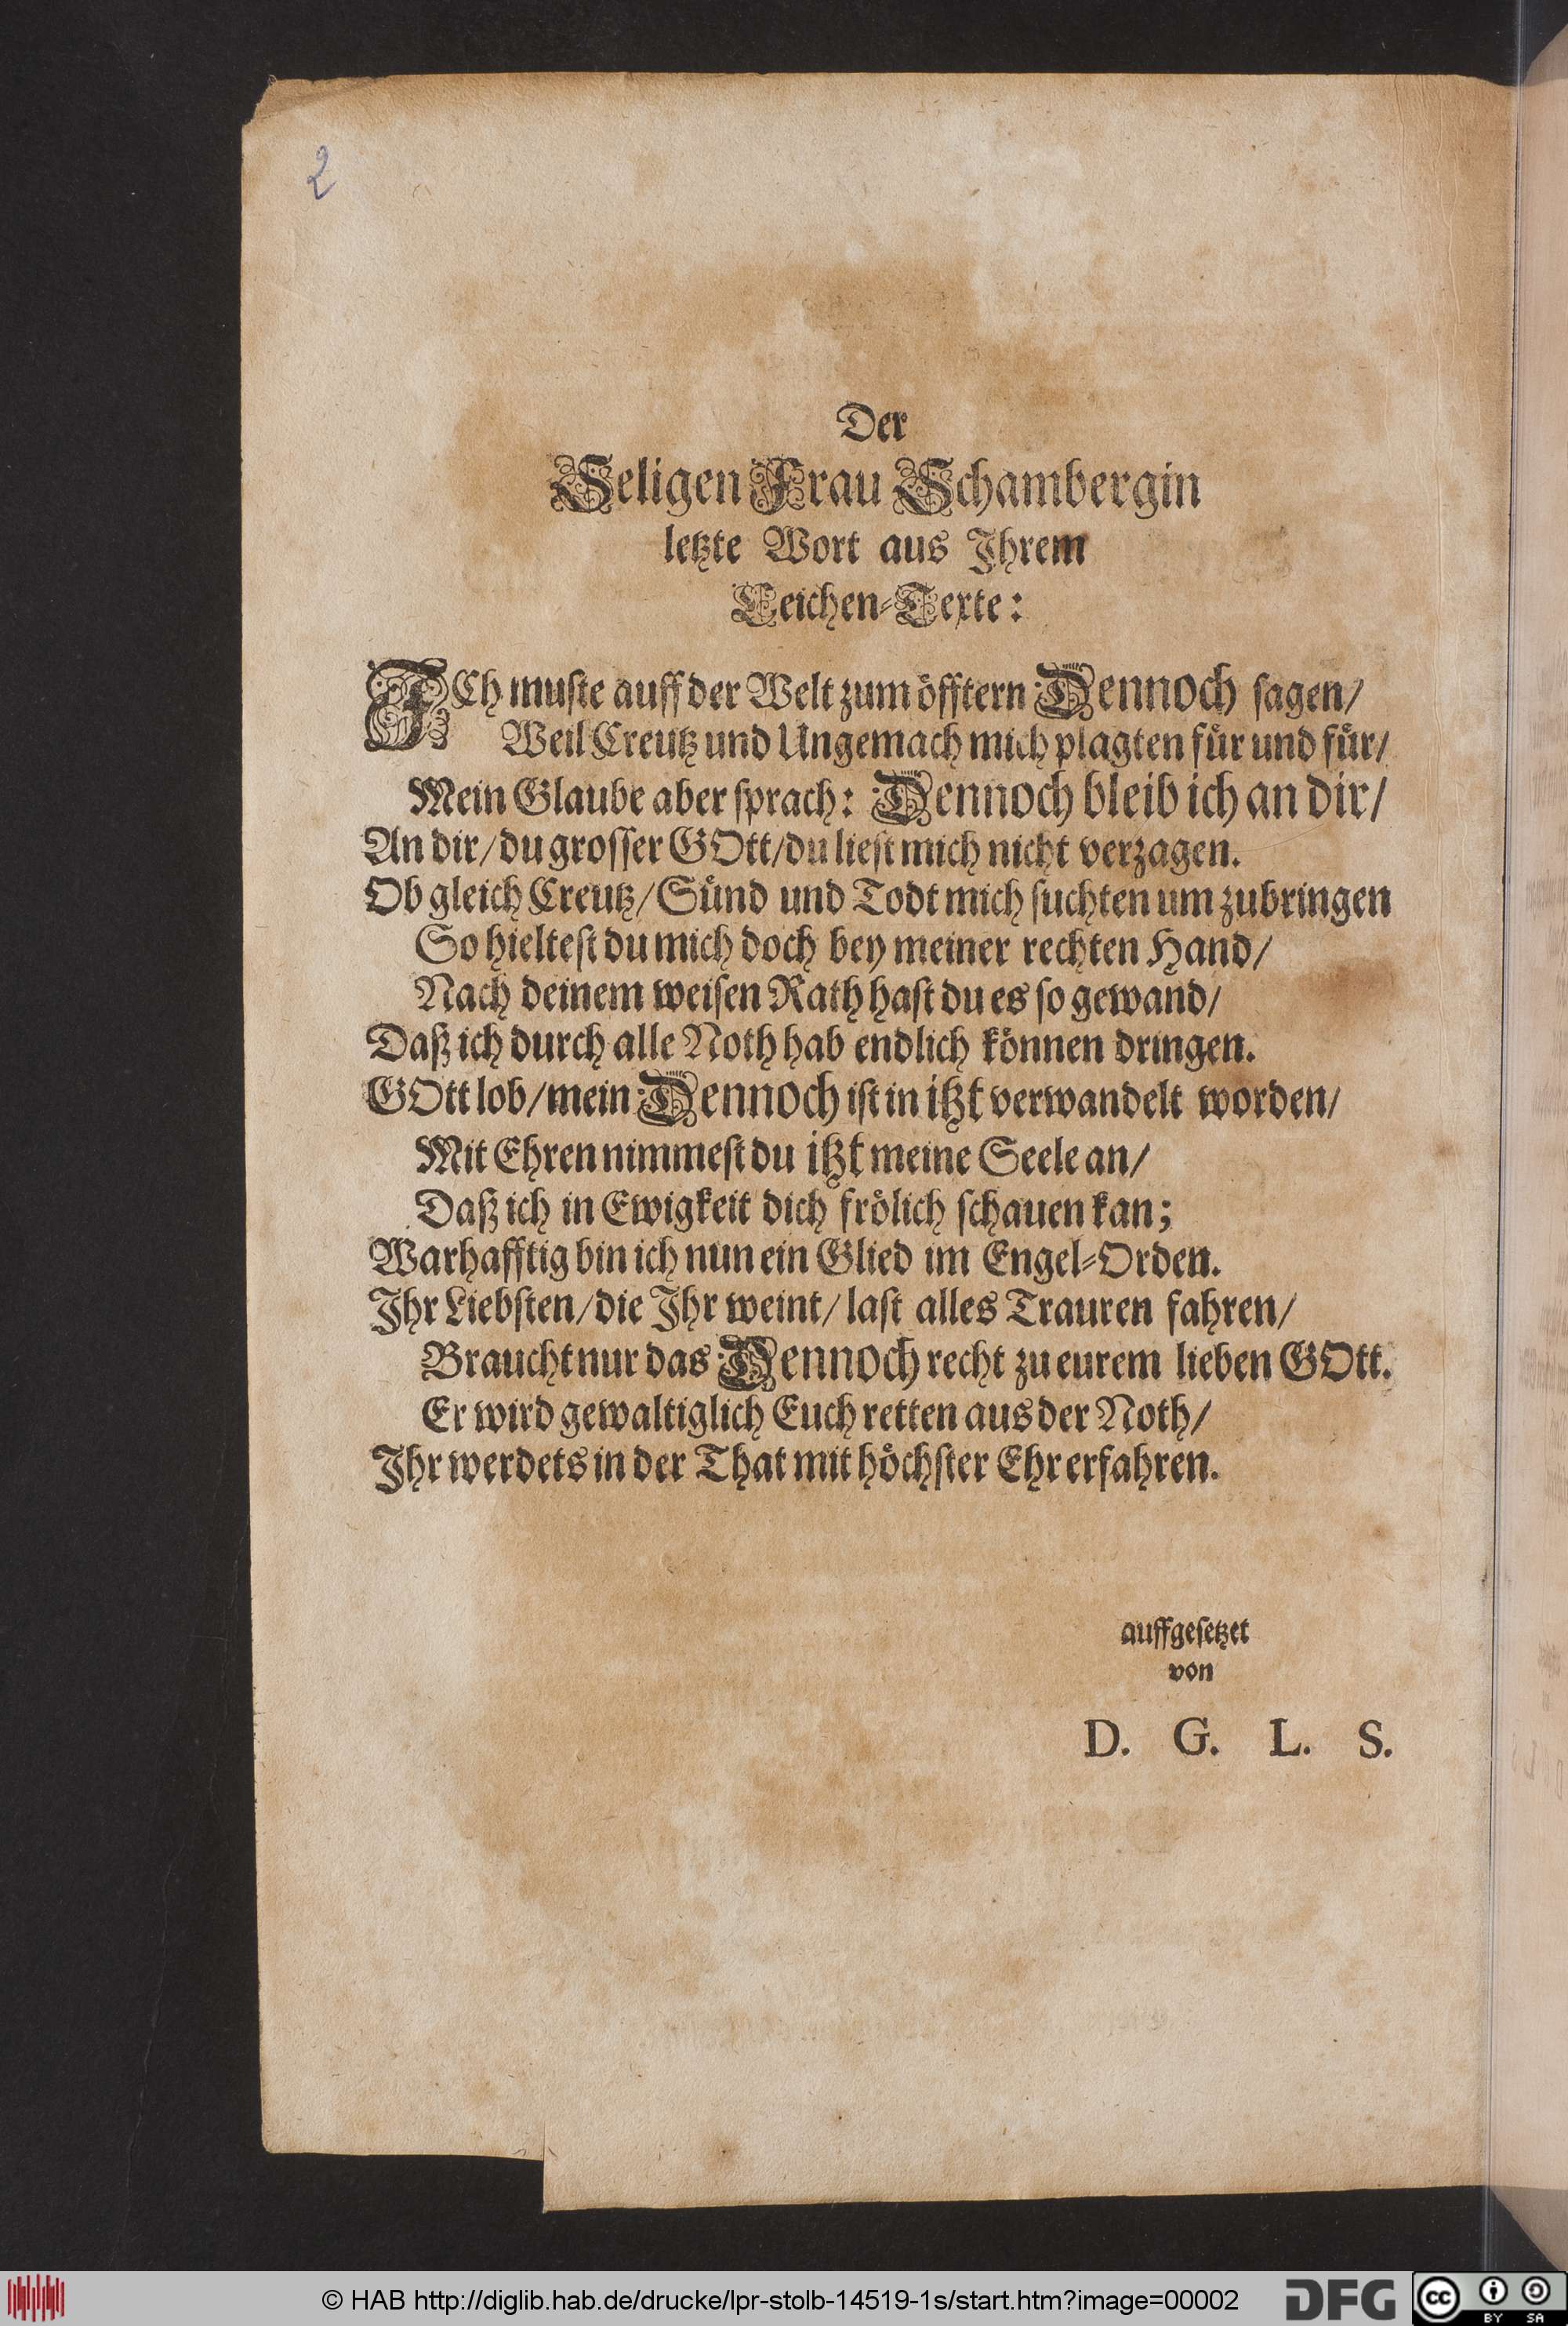 2
Der
Seligen Frau Schambergin
letzte Wort aus Ihrem
Leichen-Texte:
ICh muste auff der Welt zum öfftern Dennoch sagen/
Weil Creutz und Ungemach mich plagten für und für/
Mein Glaube aber sprach: Dennoch bleib ich an dir/
An dir/ du grosser GOtt/ du liest mich nicht verzagen.
Ob gleich Creutz/ Sünd und Todt mich suchten um zubringen
So hieltest du mich doch bey meiner rechten Hand/
Nach deinem weisen Rath hast du es so gewand/
Daß ich durch alle Noth hab endlich können dringen.
GOtt lob/ mein Dennoch ist in itzt verwandelt worden/
Mit Ehren nimmest du itzt meine Seele an/
Daß ich in Ewigkeit dich frölich schauen kan;
Warhafftig bin ich nun ein Glied im Engel-Orden.
Ihr Liebsten/ die Ihr weint/ last alles Trauren fahren/
Braucht nur das Dennoch recht zu eurem lieben GOtt.
Er wird gewaltiglich Euch retten aus der Noth/
Ihr werdets in der That mit höchster Ehr erfahren.
auffgesetzet
von
D. G. L. S.
© HAB http://diglib.hab.de/drucke/lpr-stolb-14519-1s/start.htm?image=00002
DFG
cc BY SA